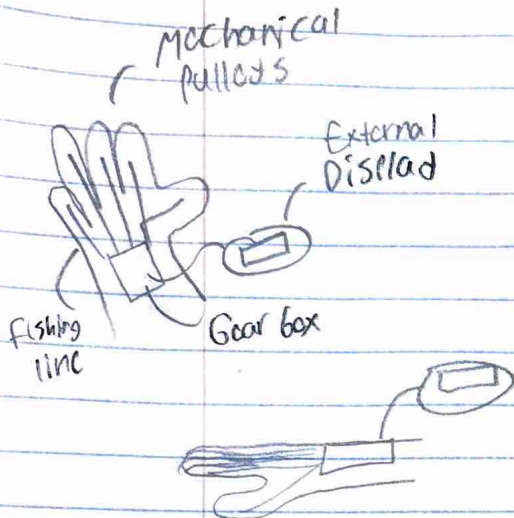 Mechanical
pulleys
External
Display
Fishing
line
Gear box